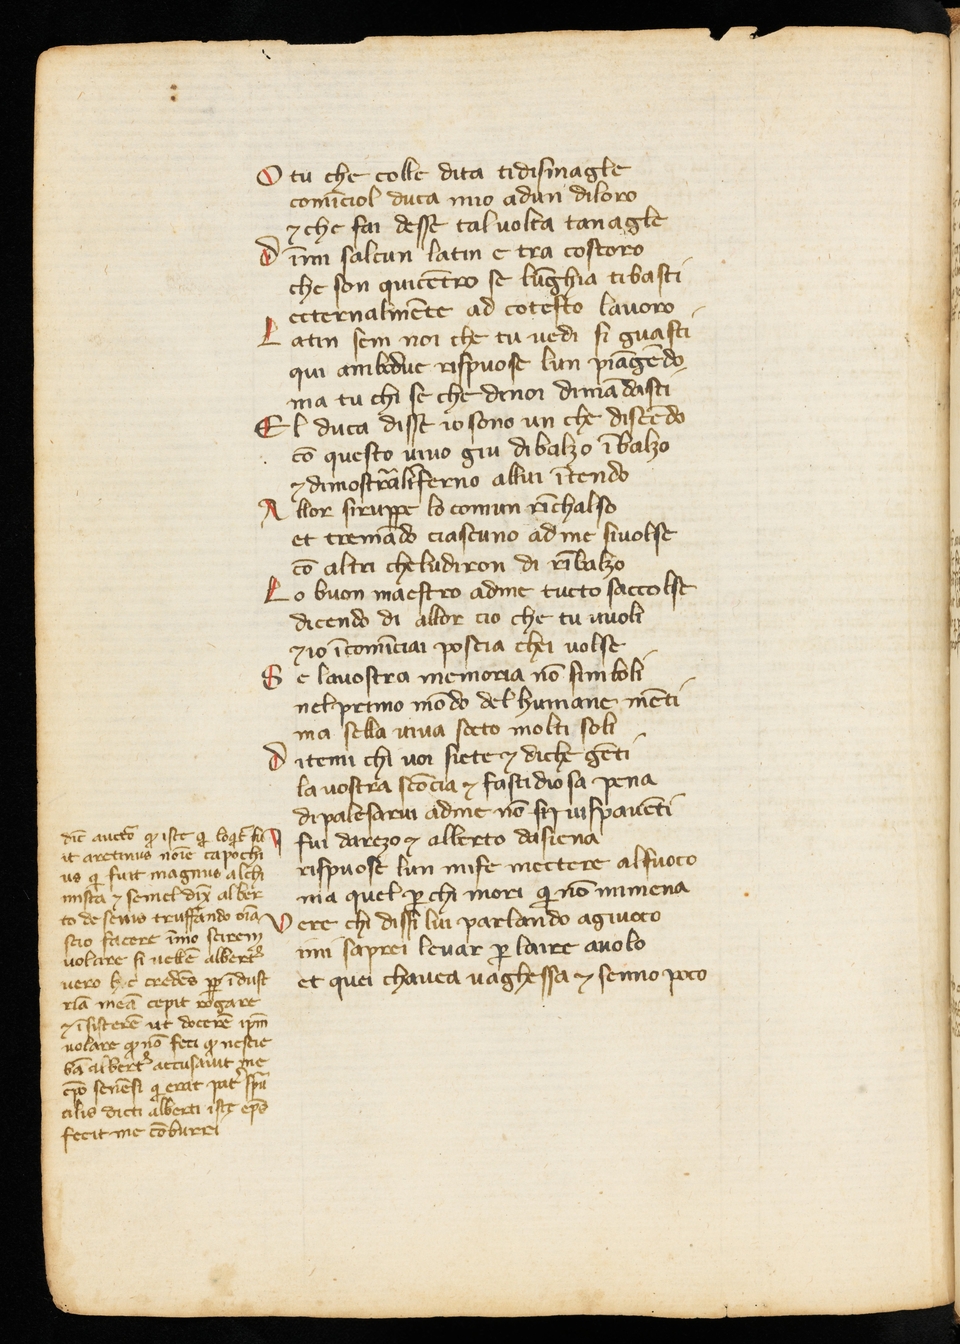 O tu che colle dita tidismagle
comīciol duca mio adun diloro
⁊ che fai desse tal volta tanagle
Dīmi salcun latin e tra costoro
che son quicētro se lūghia tibasti
etternalmēte ad cotesto lavoro
Latin sem noi che tu vedi si guasti
qui ambedue rispuose lun piāgēdo
ma tu chi se che denoi dimādasti
El duca disse io sono un che discēdo
cō questo vivo giu dibalzo ībalzo
⁊ dimostrar līferno allui ītendo
Allor siruppe lo comun rīchalso
et tremādo ciascuno ad me sivolse
cō altri cheludiron di rībalzo
Lo buon maestro adme tucto saccolse
dicendo di allor cio che tu vuoli
⁊ io īcomīciai poscia chei volse
Se lavostra memoria nō simboli
nel primo mōdo del humane mēti
ma sella viva socto molti soli
Ditemi chi voi siete ⁊ diche gēti
la vostra scōcia ⁊ fastidiosa pena
dipalesarvi adme nō vispavēti
fui darezo ⁊ alberto dasiena
rispuose lun mife mectere alfuoco
ma quel ꝑ chi mori qi nō mimena
Vere chi dissi lui parlando agiuoco
imi saprei levar ꝑ laire avolo
et quei chavea vaghessa ⁊ senno poco
dic̄ auctō qͥ iste qͥ loqͥt̄ fu
it aretinus noīe capochi
us qͥ fuit magnus alchi
mista ⁊ semel dix̄ alber
to de senis truffando oīa
scio facere īmo scirem
volare si vellē albertꝰ
vero h c̄ credēs ꝓꝑ īdust
riā meā cepit rogare
⁊ īsisterē ut docerē ip̄m
volare qͥ nō feci qͥ nescie
bā albertꝰ accusavit me
ep̄o senēsi qͥ erat pat̄ sp̄u
alis dicti alberti iste ep̄s
fecit me cōburri